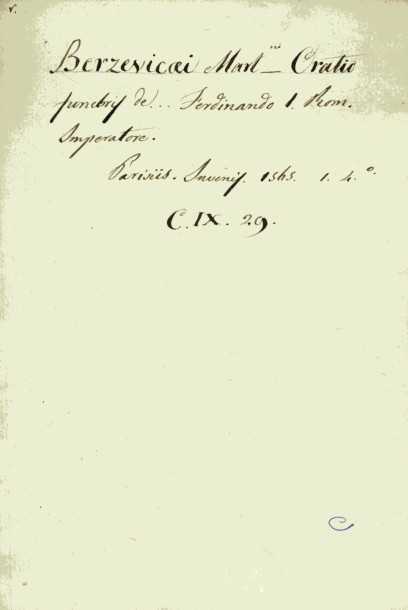 v.
Berzevicæi Mart Oratio
funebris de .. Ferdinando 1. Rom.
Imperatore.
Parisiis. 1565. 1. 4.º
C. IX. 29.